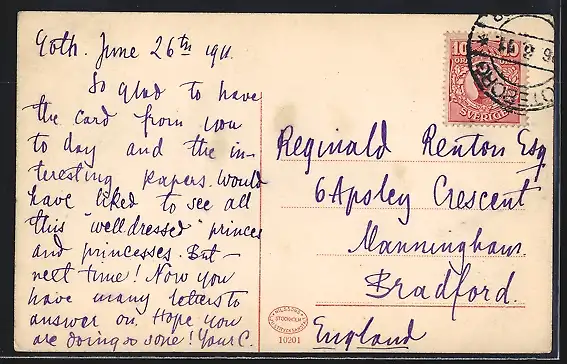 Goth. June 26th 1911.
So glad to have
the card from you
to day and the in-
teresting papers. Would
have liked to see all
this "welldressed" princes
and princesses. But -
next time! Now you
have many letters to
answer on. Hope you
are doing so some! Your C.
10
SVERIGE
GÖTEBORG
Reginald Renton Esq
6 Apsley Crescent
Manningham
Bradford
England
STOCKHOLM
10201